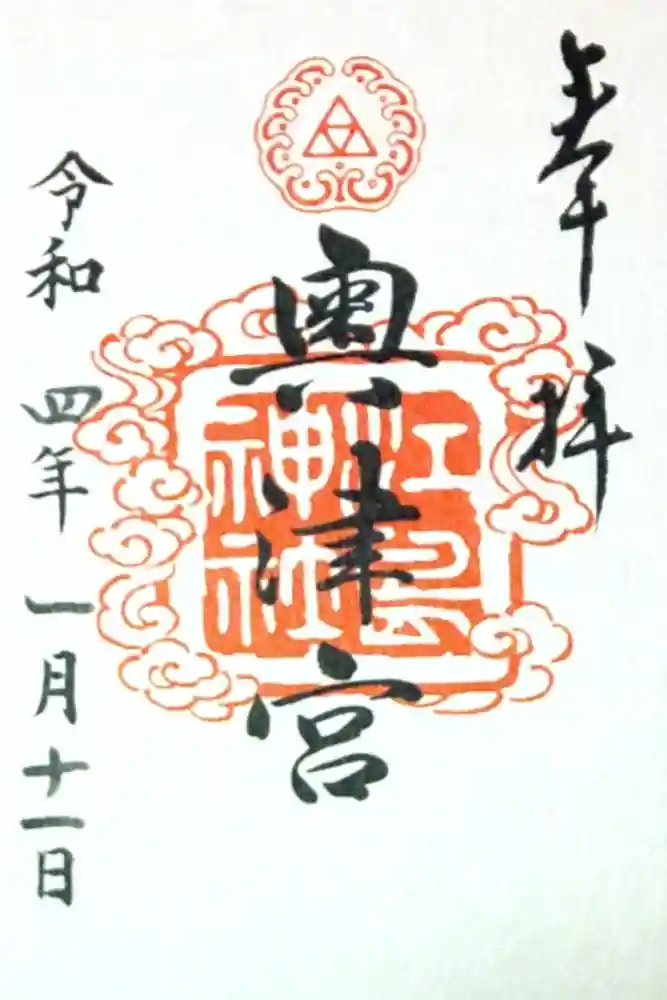 奉拝
奥津宮
江島神社
令和 四年 一月十一日